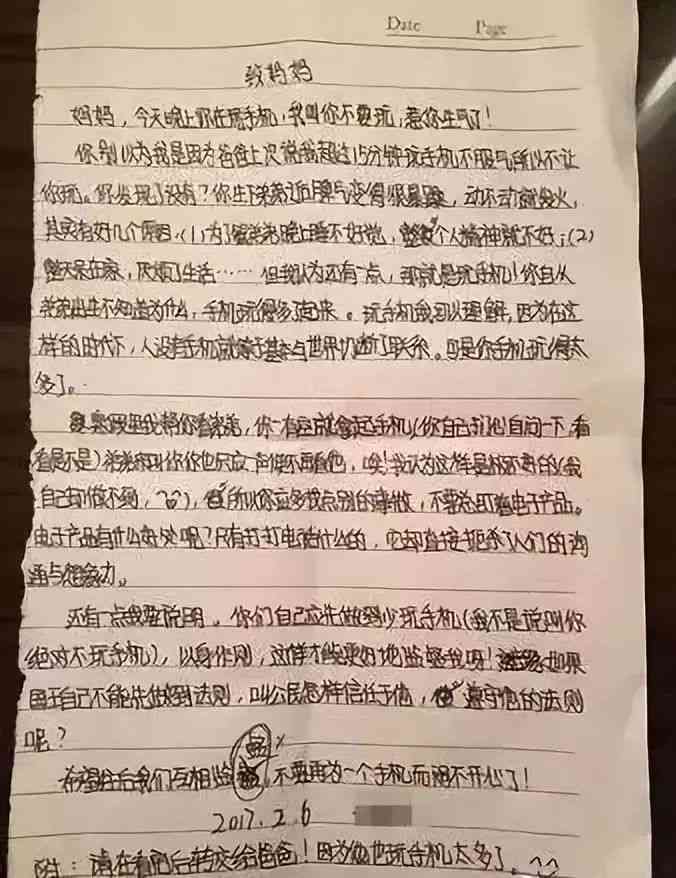 Date Page
致妈妈
妈妈，今天晚上你在玩手机，我叫你不要玩，惹你生气了！
你别以为我是因为爸爸上次说我超过15分钟玩手机不服气所以不让
你玩。你发现了没有？你生下弟弟近脾气变得很暴躁，动不动就发火，
其实有好几个原因，(1)为了照弟弟晚上睡不好觉，整个人精神就不好；(2)
整天呆在家，厌烦了生活……但我认为还有一点，那就是玩手机！你自从
弟弟出生不知道为什么，手机玩得多了起来。玩手机我可以理解，因为在这
样的时代下，人没有手机就等于基本与世界切断了联系。可是你手机玩得太
多了。
如果我帮你看弟弟，你一有空就拿起手机(你自己扪心自问一下，看
看是不是)弟弟来叫你你也只应一声便不再看他，唉！我认为这样是极不好的(我
自己却做不到，)，所以你应多找点别的事做，不要总盯着电子产品。
电子产品有什么好处呢？只有打打电话什么的，它却直接扼杀了人们的沟
通与想象力。
还有一点我要说明。你们自己应先做到少玩手机(我不是说叫你
绝对不玩手机)，以身作则，这样才能更好地监督我呀！如果
国王自己不能先做到法则，叫公民怎样信任于他，遵守他的法则
呢？
希望往后我们互相监督，不要再为一个手机而闹不开心了！
2017.2.6
附：请在看完后转交给爸爸！因为他也玩手机太多了。